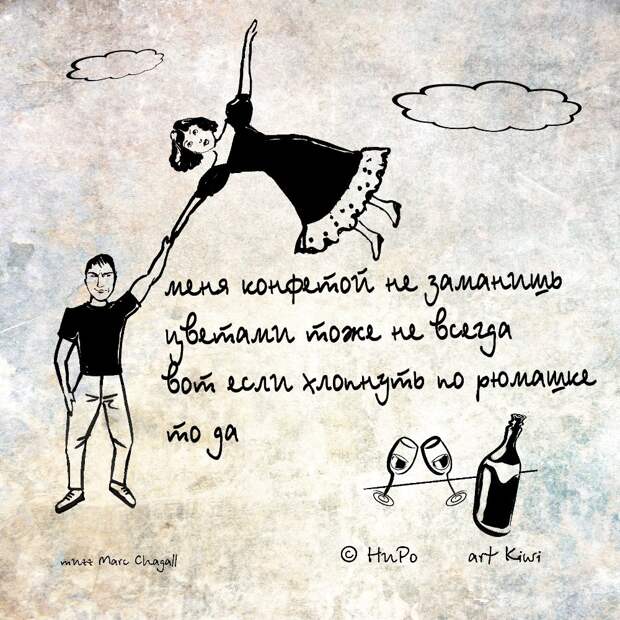 меня конфетой не заманишь
цветами тоже не всегда
вот если хлопнуть по рюмашке
то да
© НиРо art Kiwi
типа Marc Chagall